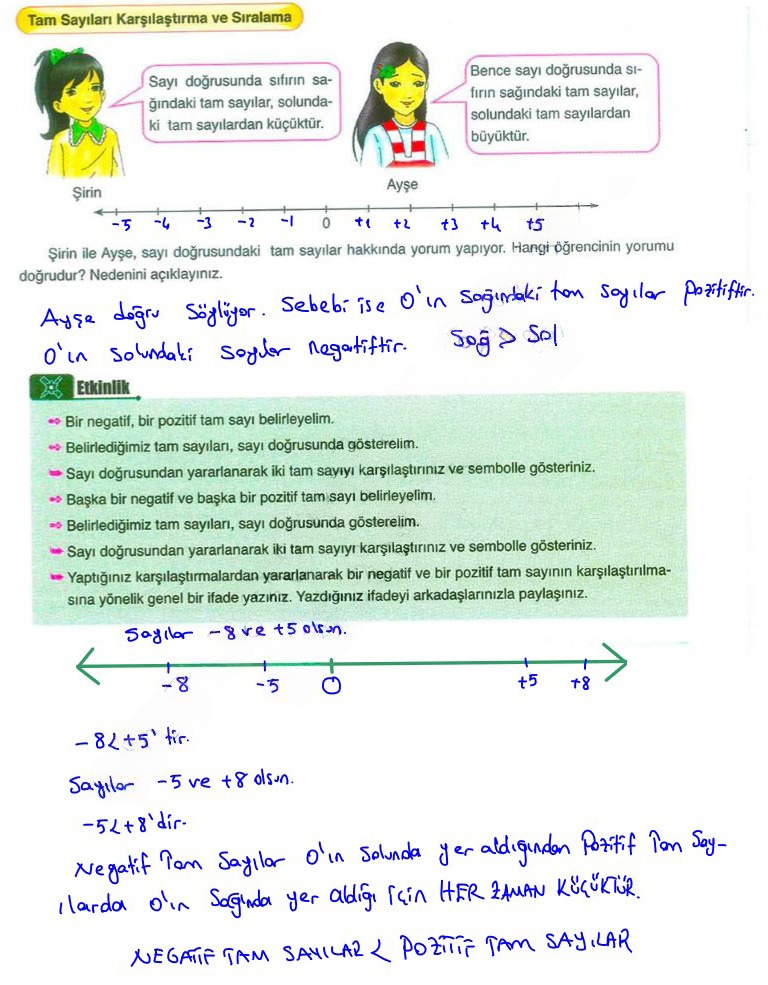 Tam Sayıları Karşılaştırma ve Sıralama
Sayı doğrusunda sıfırın sa-
ğındaki tam sayılar, solunda-
ki tam sayılardan küçüktür.
Bence sayı doğrusunda sı-
fırın sağındaki tam sayılar,
solundaki tam sayılardan
büyüktür.
Şirin
Ayşe
-5 -4 -3 -2 -1 0 +1 +2 +3 +4 +5
Şirin ile Ayşe, sayı doğrusundaki tam sayılar hakkında yorum yapıyor. Hangi öğrencinin yorumu
doğrudur? Nedenini açıklayınız.
Ayşe doğru söylüyor. Sebebi ise 0'ın sağındaki tam sayılar pozitiftir.
0'ın solundaki sayılar negatiftir. Sağ > Sol
Etkinlik
Bir negatif, bir pozitif tam sayı belirleyelim.
Belirlediğimiz tam sayıları, sayı doğrusunda gösterelim.
Sayı doğrusundan yararlanarak iki tam sayıyı karşılaştırınız ve sembolle gösteriniz.
Başka bir negatif ve başka bir pozitif tam sayı belirleyelim.
Belirlediğimiz tam sayıları, sayı doğrusunda gösterelim.
Sayı doğrusundan yararlanarak iki tam sayıyı karşılaştırınız ve sembolle gösteriniz.
Yaptığınız karşılaştırmalardan yararlanarak bir negatif ve bir pozitif tam sayının karşılaştırılma-
sına yönelik genel bir ifade yazınız. Yazdığınız ifadeyi arkadaşlarınızla paylaşınız.
Sayılar -8 ve +5 olsun.
-8 -5 0 +5 +8
-8<+5'tir.
Sayılar -5 ve +8 olsun.
-5<+8'dir.
Negatif Tam Sayılar 0'ın Solunda yer aldığından Pozitif Tam Say-
ılarda 0'ın Sağında yer aldığı için HER ZAMAN KÜÇÜKTÜR.
NEGATİF TAM SAYILAR < POZİTİF TAM SAYILAR